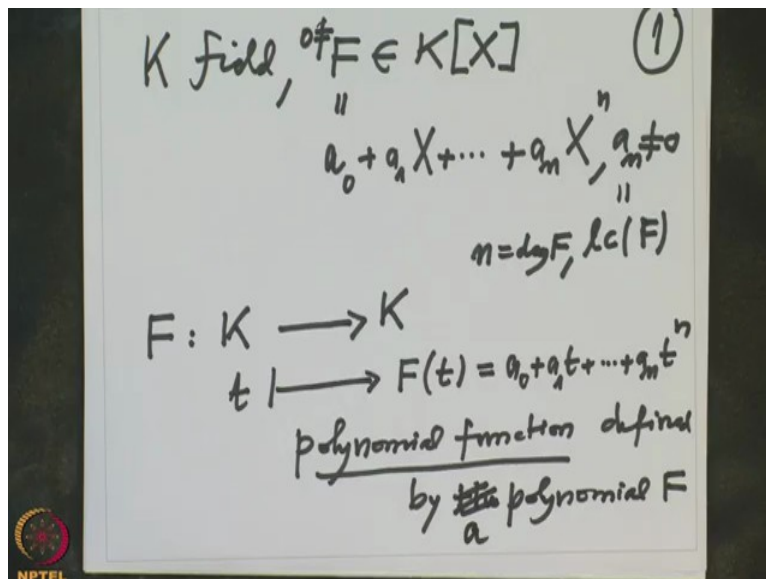 K field, 0≠F ∈ K[X] ①
||
a₀ + a₁X + ⋯ + aₙXⁿ, aₙ≠0
||
n = deg F, lc(F)
F : K ⟶ K
t ⟼ F(t) = a₀ + a₁t + ⋯ + aₙtⁿ
polynomial function defined
by a polynomial F
NPTEL